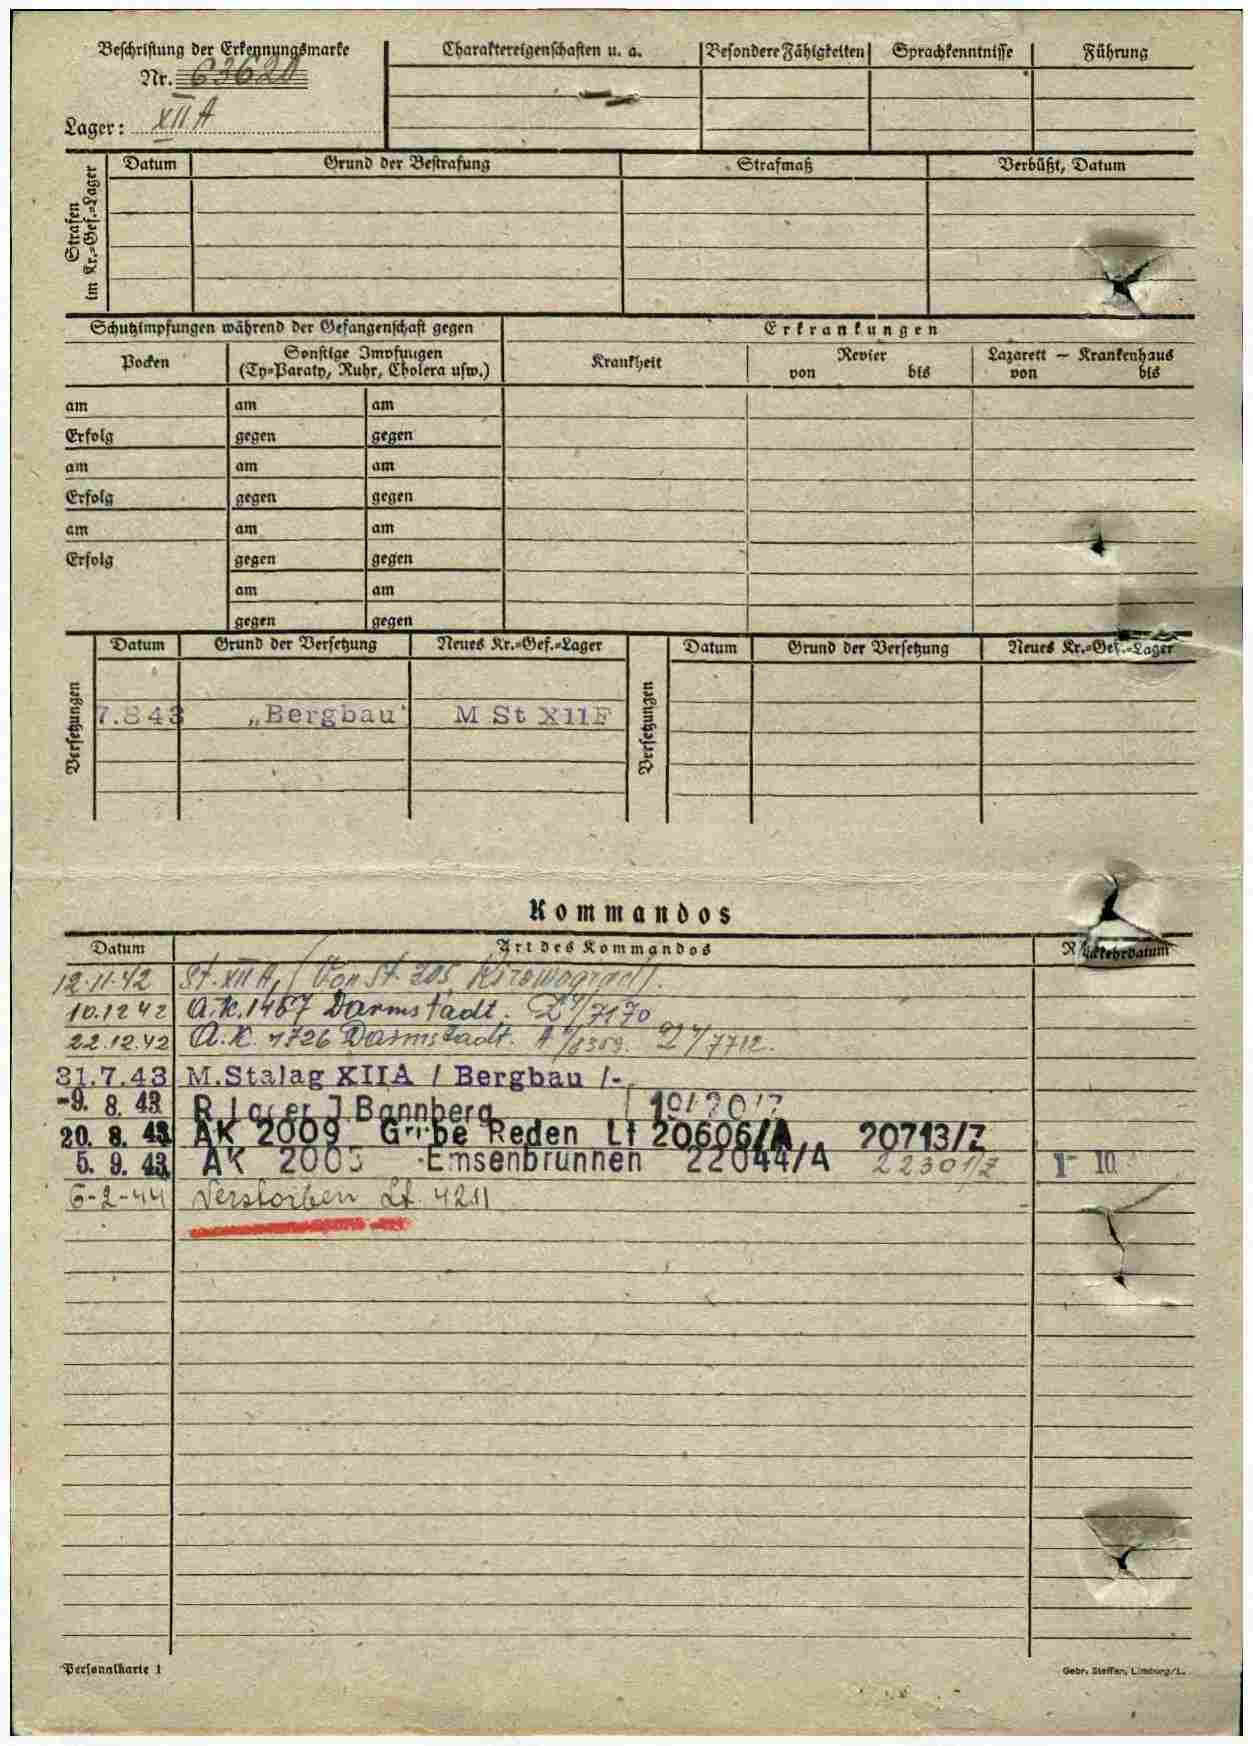 Beschriftung der Erkennungsmarke
Nr. 63620
Lager: XII A
Charaktereigenschaften u. a.
Besondere Fähigkeiten
Sprachkenntnisse
Führung
Strafen im Kr.=Gef.=Lager
Datum
Grund der Bestrafung
Strafmaß
Verbüßt, Datum
Schutzimpfungen während der Gefangenschaft gegen
Erkrankungen
Pocken
Sonstige Impfungen
(Ty=Paraty, Ruhr, Cholera usw.)
Krankheit
Revier
von bis
Lazarett — Krankenhaus
von bis
am am am
Erfolg gegen gegen
am am am
Erfolg gegen gegen
am am am
Erfolg gegen gegen
am am
gegen gegen
Versetzungen
Datum Grund der Versetzung Neues Kr.=Gef.=Lager
7.8 43 „Bergbau" M St XIIF
Versetzungen
Datum Grund der Versetzung Neues Kr.=Gef.=Lager
Kommandos
Datum Art des Kommandos Rückkehrdatum
12.11.42 St. XII A, (Von St. 305, Kirowograd).
10.12 42 A.K. 1457 Darmstadt. Z 4/7170
22.12.42 A.K. 1726 Darmstadt. A 4/8359. Z 4/7712.
31.7.43 M.Stalag XIIA / Bergbau /-
-9. 8. 43 R Lager J Bannberg
20. 8. 43 AK 2009 Grube Reden Lt 20606/A 20713/Z
5. 9. 43 AK Emsenbrunnen 22044/A 22301/Z 10
6-2-44 Verstorben Lt. 4211
Personalkarte 1
Gebr. Steffen, Limburg/L.